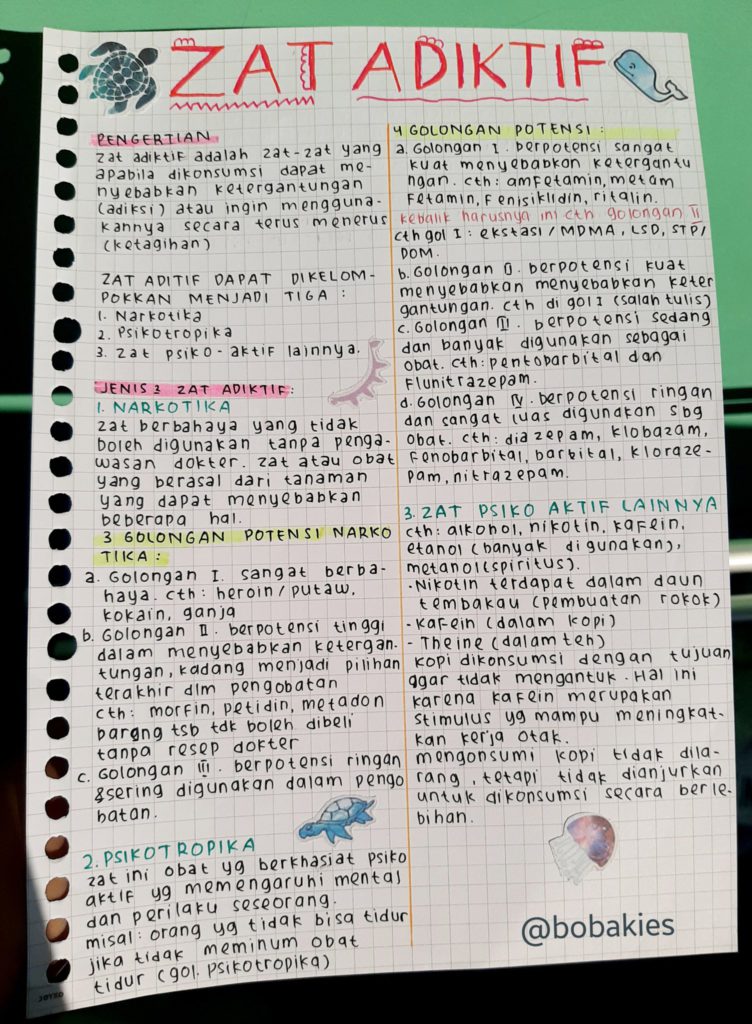 ZAT ADIKTIF
PENGERTIAN
zat adiktif adalah zat-zat yang
apabila dikonsumsi dapat me-
nyebabkan ketergantungan
(adiksi) atau ingin mengguna-
kannya secara terus menerus
(ketagihan)
ZAT ADITIF DAPAT DIKELOM-
POKKAN MENJADI TIGA :
1. Narkotika
2. Psikotropika
3. Zat psiko-aktif lainnya.
JENIS2 ZAT ADIKTIF:
1. NARKOTIKA
zat berbahaya yang tidak
boleh digunakan tanpa penga-
wasan dokter. zat atau obat
yang berasal dari tanaman
yang dapat menyebabkan
beberapa hal.
3 GOLONGAN POTENSI NARKO
TIKA :
a. Golongan I. sangat berba-
haya. cth: heroin/putaw,
kokain, ganja
b. Golongan II. berpotensi tinggi
dalam menyebabkan ketergan-
tungan, kadang menjadi pilihan
terakhir dlm pengobatan
cth: morfin, petidin, metadon
barang tsb tdk boleh dibeli
tanpa resep dokter
c. Golongan III. berpotensi ringan
&sering digunakan dalam pengo
batan.
2. PSIKOTROPIKA
zat ini obat yg berkhasiat psiko
aktif yg memengaruhi mental
dan perilaku seseorang.
misal: orang yg tidak bisa tidur
jika tidak meminum obat
tidur (gol. psikotropika)
JOYKO
4 GOLONGAN POTENSI :
a. Golongan I. berpotensi sangat
kuat menyebabkan ketergantu
ngan. cth: amfetamin, metam
fetamin, fenisiklidin, ritalin.
kebalik harusnya ini cth golongan II
cth gol I : ekstasi/MDMA, LSD, STP/
DOM.
b. Golongan II. berpotensi kuat
menyebabkan menyebabkan keter
gantungan. cth di gol I (salah tulis)
c. Golongan III. berpotensi sedang
dan banyak digunakan sebagai
obat. cth: pentobarbital dan
Flunitrazepam.
d. Golongan IV. berpotensi ringan
dan sangat luas digunakan sbg
obat. cth: diazepam, klobazam,
fenobarbital, barbital, kloraze-
pam, nitrazepam.
3. ZAT PSIKO AKTIF LAINNYA
cth: alkohol, nikotin, kafein,
etanol (banyak digunakan),
metanol (spiritus).
-Nikotin terdapat dalam daun
tembakau (pembuatan rokok)
-Kafein (dalam kopi)
- Theine (dalam teh)
kopi dikonsumsi dengan tujuan
agar tidak mengantuk. Hal ini
karena kafein merupakan
stimulus yg mampu meningkat-
kan kerja otak.
mengonsumi kopi tidak dila-
rang, tetapi tidak dianjurkan
untuk dikonsumsi secara berle-
bihan.
@bobakies